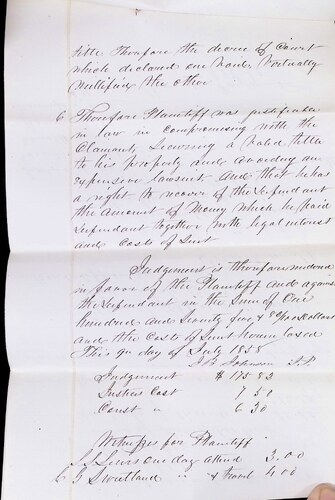 title therefore the decree of Court
which declared one Trade Virtually
nullifies the other
6 Therefore Plaintiff was justifiable
in law in compromising with the
Clamant, Securing a valid title
to his property and avoiding an
expensive lawsuit and that he has
a right to recover of the Defendant
the amount of Money which he paid
Defendant together with legal interest
and Costs of Suit
Judgement is therefore rendered
in favor of the Plaintiff and against
the Defendant in the Sum of One
hundred and Seventy five & 83/100 Dollars
and the Costs of Suit herein taxed
This 9th day of July 1858
Johnson J.P.
Judgement $ 175 83
Justices Cost 7 50
Const " 6 30
Witnesses for Plaintiff
Lewis one day attend 3.00
" & travel 4 00